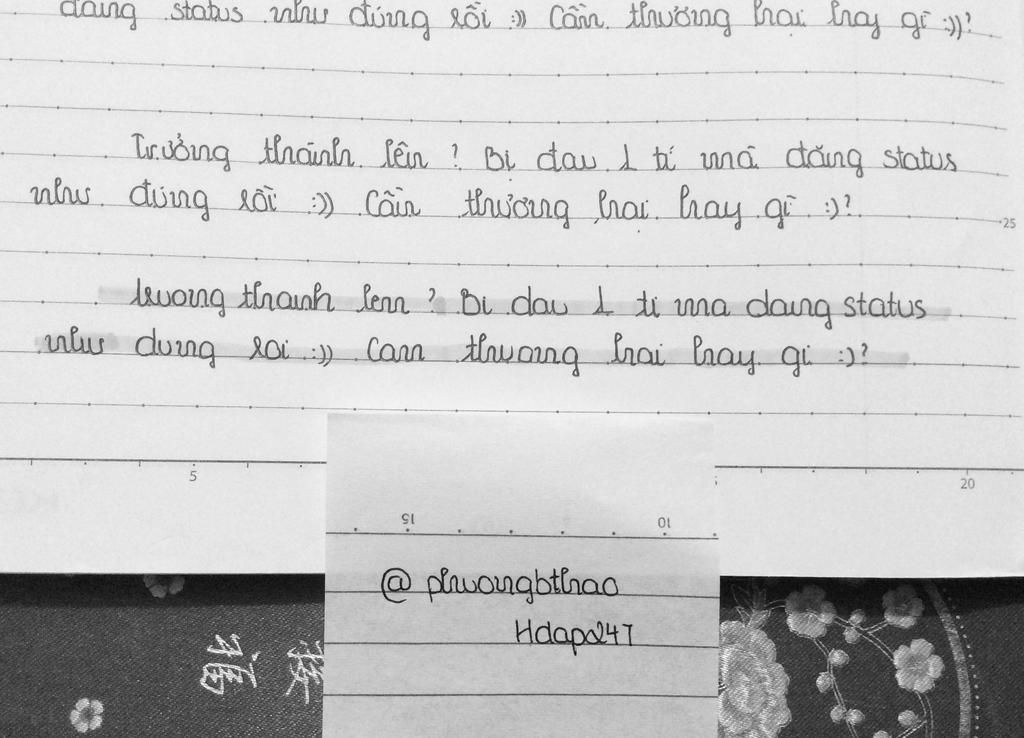 đăng status như đúng rồi :)) Cần thương hại hay gì :))?
Trưởng thành lên ? Bị đau 1 tí mà đăng status
như đúng rồi :)) Cần thương hại hay gì :)?
25
truong thanh lenn ? Bi dau 1 ti ma dang status
như dung roi :)) Cann thuong hai hay gi :)?
5
20
15
10
@ phuongbthao
Hdapa247